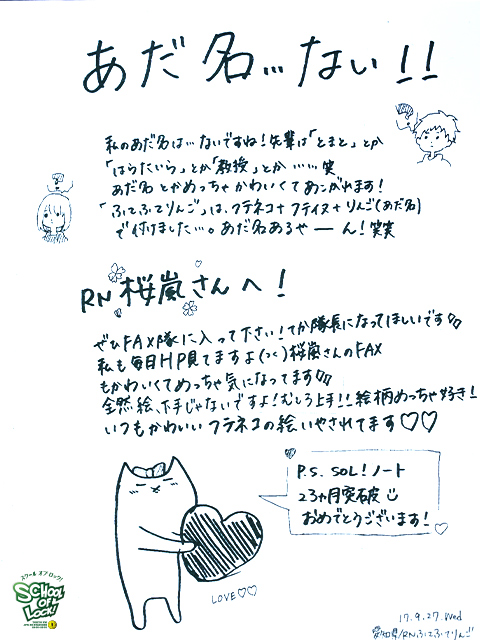 あだ名…ない!!
私のあだ名は…ないですね!先輩は「とまと」とか
「はらたいら」とか「教授」とか……笑
あだ名とかめっちゃかわいくてあこがれます!
「ふてふてりんご」は、フテネコ+フテイヌ+りんご(あだ名)
で付けました…。あだ名あるやーーん!笑笑
RN桜嵐さんへ!
ぜひFAX隊に入って下さい!てか隊長になってほしいです
私も毎日HP見てますよ(っ<)桜嵐さんのFAX
もかわいくてめっちゃ気になってます
全然絵、下手じゃないですよ!むしろ上手!!絵柄めっちゃ好き!
いつもかわいいフテネコの絵いやされてます♡♡
P.S. SOL!ノート
23ヵ月突破
おめでとうございます!
LOVE♡♡
スクール オブ ロック!
SCHOOL OF LOCK!
17.9.27.Wed
愛知県/RN.ふてふてりんご